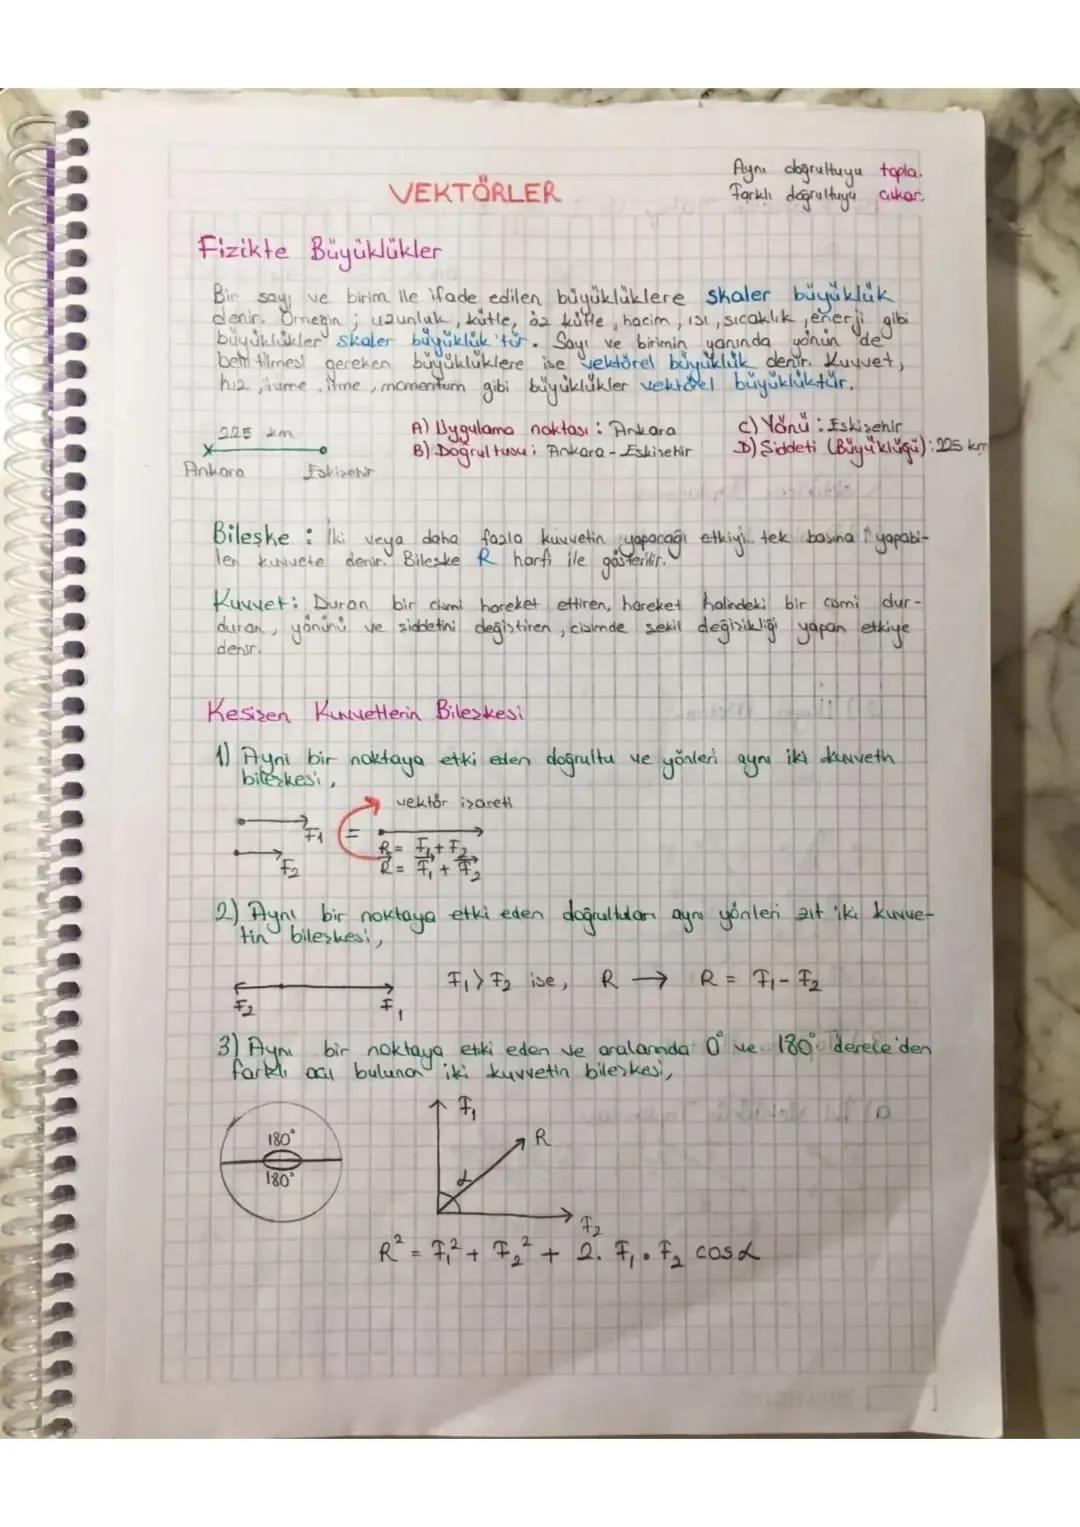 Aynı doğrultuyu topla.
Farklı doğrultuyu çıkar.
VEKTÖRLER
Fizikte Büyüklükler
Bir sayı ve birim ile ifade edilen büyüklüklere skaler büyüklük
denir. Örneğin ; uzunluk, kütle, öz kütle, hacim, ısı, sıcaklık, enerji gibi
büyüklükler skaler büyüklük'tür. Sayı ve birimin yanında yönün de
belirtilmesi gereken büyüklüklere ise vektörel büyüklük denir. Kuvvet,
hız, itme, momentum gibi büyüklükler vektörel büyüklüktür.
225 km
Ankara Eskişehir
A) Uygulama noktası : Ankara
B) Doğrultusu : Ankara - Eskişehir
C) Yönü : Eskişehir
D) Şiddeti (Büyüklüğü) : 225 km
Bileşke : İki veya daha fazla kuvvetin yapacağı etkiyi tek başına yapabi-
len kuvvete denir. Bileşke R harfi ile gösterilir.
Kuvvet : Duran bir cismi hareket ettiren, hareket halindeki bir cismi dur-
duran, yönünü ve şiddetini değiştiren, cisimde şekil değişikliği yapan etkiye
denir.
Kesişen Kuvvetlerin Bileşkesi
1) Aynı bir noktaya etki eden doğrultu ve yönleri aynı iki kuvvetin
bileşkesi,
vektör işareti
F₁ =
F₂
R = F₁ + F₂
R⃗ = F⃗₁ + F⃗₂
2) Aynı bir noktaya etki eden doğrultuları aynı yönleri zıt iki kuvve-
tin bileşkesi,
F₂ F₁
F₁ > F₂ ise, R → R = F₁ - F₂
3) Aynı bir noktaya etki eden ve aralarında 0° ve 180° derece'den
farklı açı bulunan iki kuvvetin bileşkesi,
180°
180°
F₁
R
α
F₂
R² = F₁² + F₂² + 2. F₁ . F₂ cosα